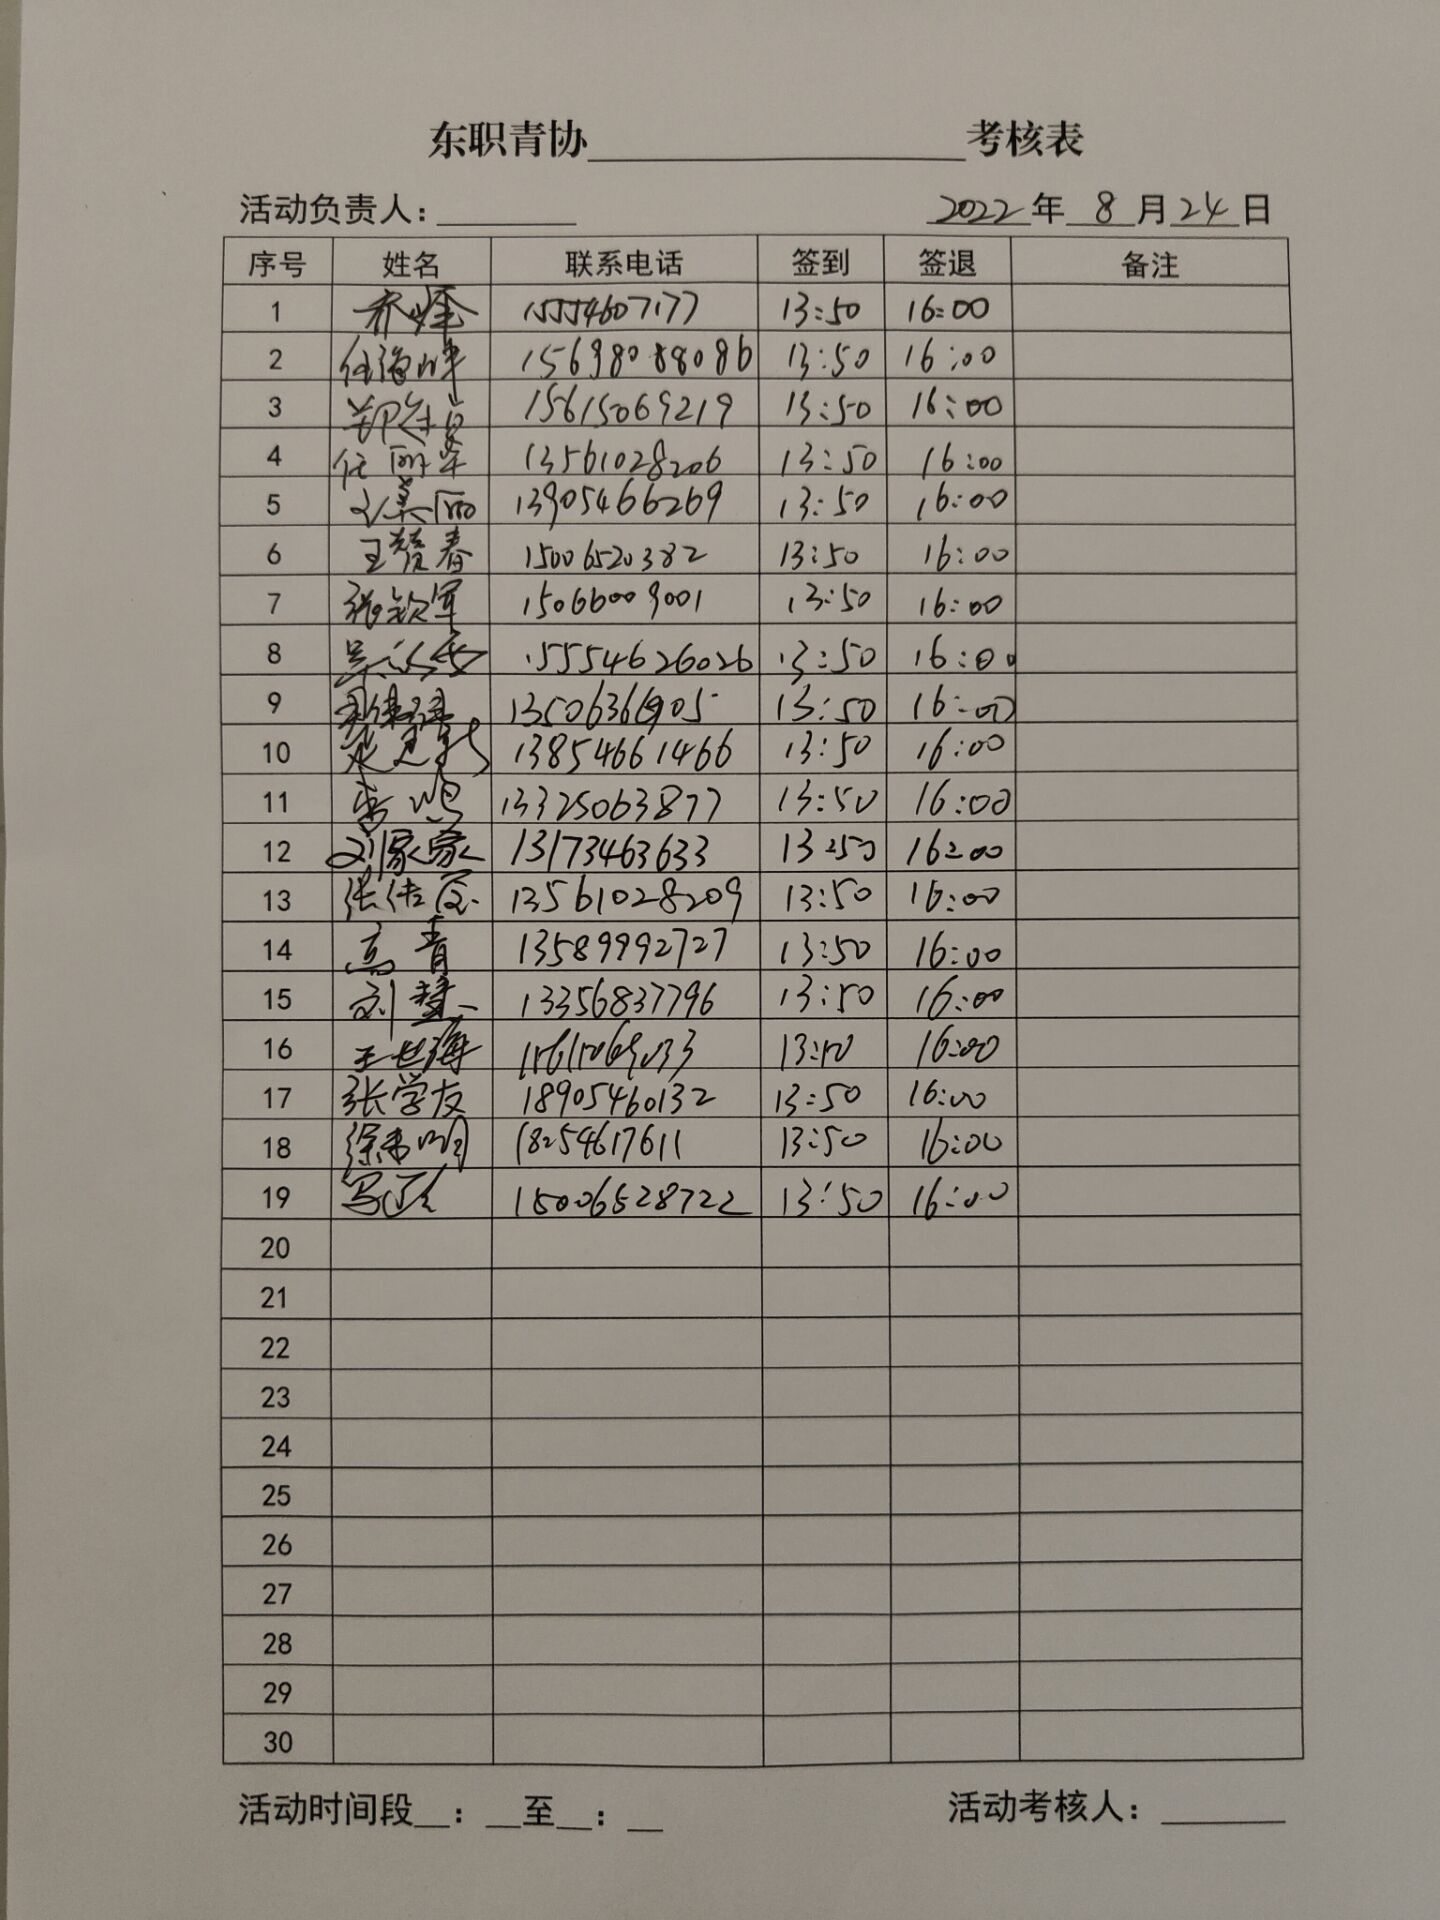 东职青协____________考核表
活动负责人：________ 2022年 8 月 24 日
序号 姓名 联系电话 签到 签退 备注
1 乔峰 15554607177 13:50 16:00
2 任海峰 15698088086 13:50 16:00
3 15615069219 13:50 16:00
4 任丽华 13561028206 13:50 16:00
5 刘美丽 13905466269 13:50 16:00
6 王赞春 15006520382 13:50 16:00
7 张钦军 15066009001 13:50 16:00
8 15554626026 13:50 16:00
9 13506366905 13:50 16:00
10 13854661466 13:50 16:00
11 李鸣 13325063877 13:50 16:00
12 刘家家 13173463633 13:50 16:00
13 13561028209 13:50 16:00
14 高青 13589992727 13:50 16:00
15 刘慧 13356837796 13:50 16:00
16 王世海 15615069033 13:50 16:00
17 张学友 18905460132 13:50 16:00
18 18254617611 13:50 16:00
19 15006528722 13:50 16:00
20
21
22
23
24
25
26
27
28
29
30
活动时间段__：__至__：__ 活动考核人：_______